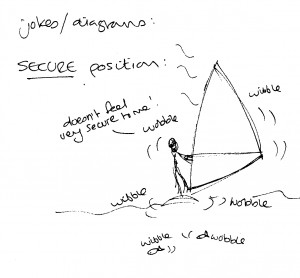 jokes/diagrams:
SECURE position:
wibble
doesn't feel
very secure to me!
wobble
wibble
wobble
wibble
wobble